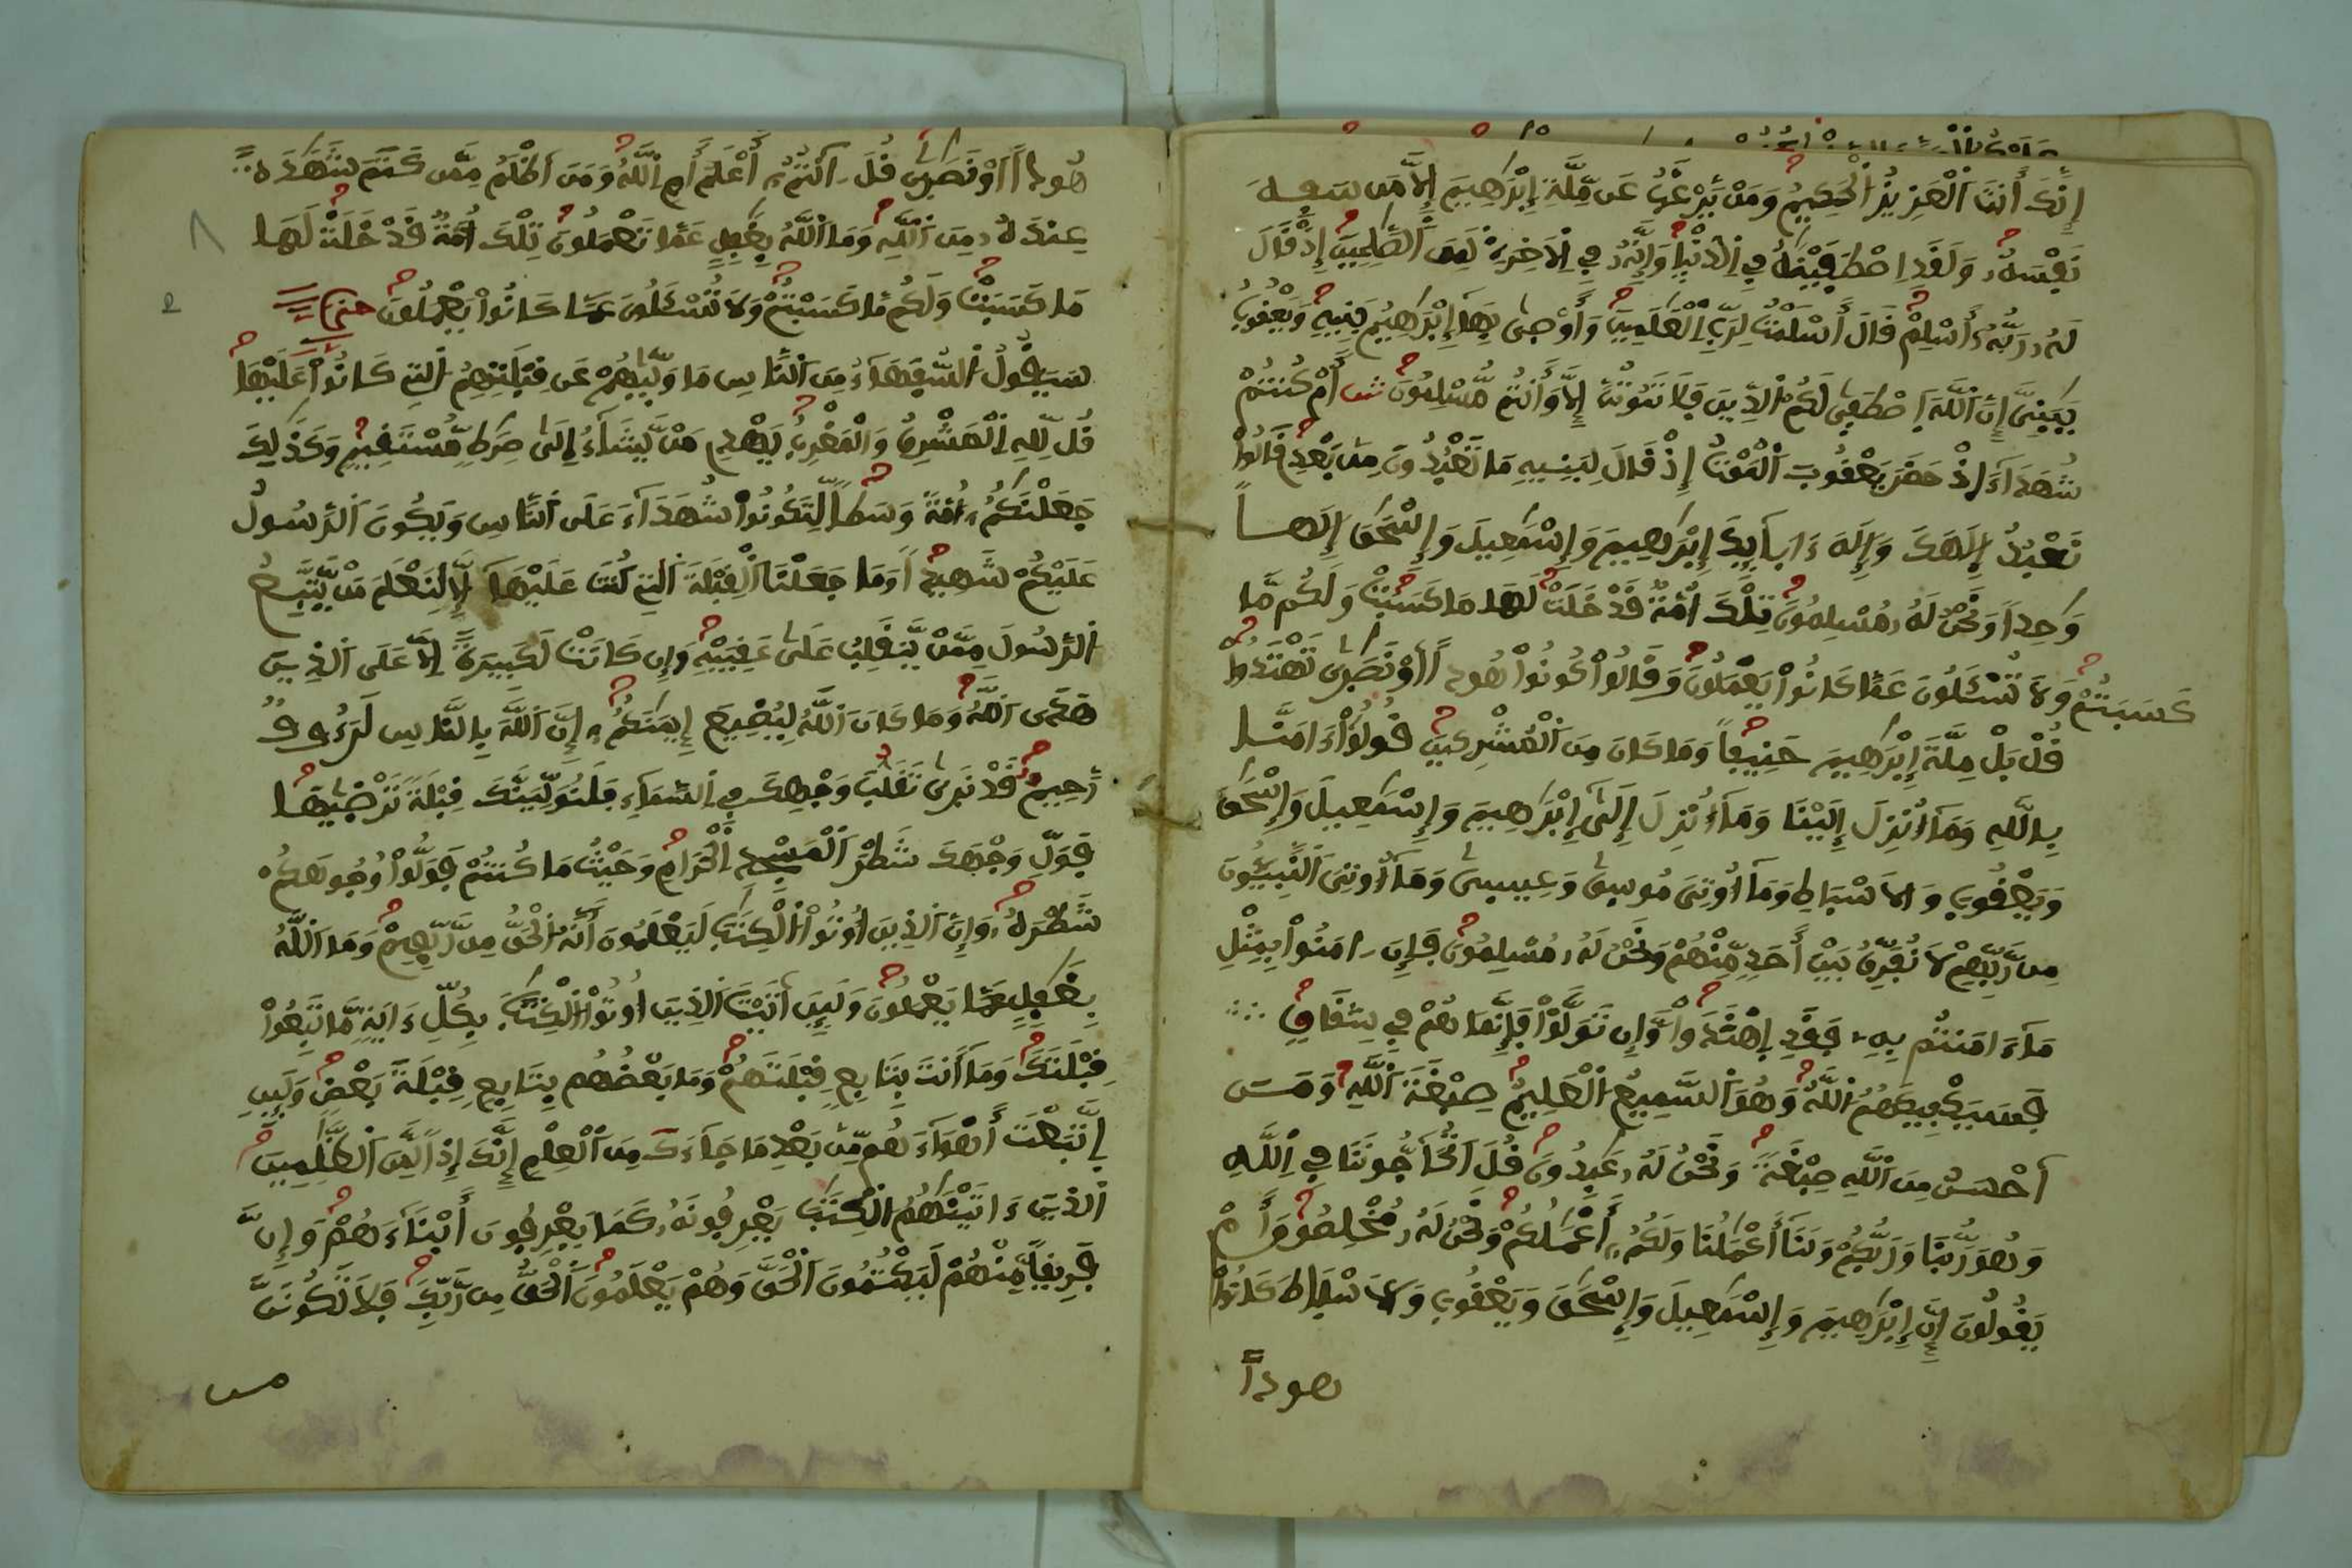 إِنَّكَ أَنتَ ٱلْعَزِيزُ ٱلْحَكِيمُ وَمَنْ يَّرْغَبُ عَن مِّلَّةِ إِبْرَٰهِيمَ إِلَّا مَن سَفِهَ
نَفْسَهُۥ وَلَقَدِ ٱصْطَفَيْنَٰهُ فِي ٱلدُّنْيَا وَإِنَّهُۥ فِي ٱلْأَخِرَةِ لَمِنَ ٱلصَّٰلِحِينَ إِذْ قَالَ
لَهُۥ رَبُّهُۥ أَسْلِمْ قَالَ أَسْلَمْتُ لِرَبِّ ٱلْعَٰلَمِينَ وَأَوْصَىٰ بِهَا إِبْرَٰهِيمُ بَنِيهِ وَيَعْقُوبُ
يَٰبَنِيَّ إِنَّ ٱللَّهَ ٱصْطَفَىٰ لَكُمُ ٱلدِّينَ فَلَا تَمُوتُنَّ إِلَّا وَأَنتُم مُّسْلِمُونَ ثمن أَمْ كُنتُمْ
شُهَدَآءَ اذْ حَضَرَ يَعْقُوبَ ٱلْمَوْتُ إِذْ قَالَ لِبَنِيهِ مَا تَعْبُدُونَ مِنۢ بَعْدِي قَالُوا
نَعْبُدُ إِلَٰهَكَ وَإِلَٰهَ ءَابَآئِكَ إِبْرَٰهِيمَ وَإِسْمَٰعِيلَ وَإِسْحَٰقَ إِلَٰهاً
وَٰحِداً وَنَحْنُ لَهُۥ مُسْلِمُونَ تِلْكَ أُمَّةٌ قَدْ خَلَتْ لَهَا مَا كَسَبَتْ وَلَكُم مَّا
كَسَبْتُمْ وَلَا تُسْـَٔلُونَ عَمَّا كَانُوا يَعْمَلُونَ وَقَالُوا كُونُوا هُوداً اَوْ نَصَٰرَىٰ تَهْتَدُوا
قُلْ بَلْ مِلَّةَ إِبْرَٰهِيمَ حَنِيفاً وَمَا كَانَ مِنَ ٱلْمُشْرِكِينَ قُولُوا ءَامَنَّا
بِاللَّهِ وَمَآ أُنزِلَ إِلَيْنَا وَمَآ أُنزِلَ إِلَىٰ إِبْرَٰهِيمَ وَإِسْمَٰعِيلَ وَإِسْحَٰقَ
وَيَعْقُوبَ وَالَاسْبَاطِ وَمَآ أُوتِيَ مُوسَىٰ وَعِيسَىٰ وَمَآ أُوتِيَ ٱلنَّبِيـُٔونَ
مِن رَّبِّهِمْ لَا نُفَرِّقُ بَيْنَ أَحَدٍ مِّنْهُمْ وَنَحْنُ لَهُۥ مُسْلِمُونَ فَإِنَ ـامَنُوا بِمِثْلِ
مَآ ءَامَنتُم بِهِۦ فَقَدِ ٱهْتَدَوا وَّإِن تَوَلَّوْا فَإِنَّمَا هُمْ فِي شِقَاقٍ
فَسَيَكْفِيكَهُمُ ٱللَّهُ وَهُوَ ٱلسَّمِيعُ ٱلْعَلِيمُ صِبْغَةَ ٱللَّهِ وَمَنَ
اَحْسَنُ مِنَ ٱللَّهِ صِبْغَةً وَنَحْنُ لَهُۥ عَٰبِدُونَ قُلَ اَتُحَآجُّونَنَا فِي ٱللَّهِ
وَهُوَ رَبُّنَا وَرَبُّكُمْ وَلَنَآ أَعْمَٰلُنَا وَلَكُمُۥٓ أَعْمَٰلُكُمْ وَنَحْنُ لَهُۥ مُخْلِصُونَ أَمْ
يَقُولُونَ إِنَّ إِبْرَٰهِيمَ وَإِسْمَٰعِيلَ وَإِسْحَٰقَ وَيَعْقُوبَ وَالَاسْبَاطَ كَانُوا
هوداً
هُوداً اَوْ نَصَٰرَىٰ قُلَ ـآنتُمُۥٓ أَعْلَمُ أَمِ ٱللَّهُ وَمَنَ اَظْلَمُ مِمَّن كَتَمَ شَهَٰدَةً
عِندَهُۥ مِنَ ٱللَّهِ وَمَا ٱللَّهُ بِغَٰفِلٍ عَمَّا تَعْمَلُونَ تِلْكَ أُمَّةٌ قَدْ خَلَتْ لَهَا
مَا كَسَبَتْ وَلَكُم مَّا كَسَبْتُمْ وَلَا تُسْـَٔلُونَ عَمَّا كَانُوا يَعْمَلُونَ حزب
سَيَقُولُ ٱلسُّفَهَآءُ مِنَ ٱلنَّاسِ مَا وَلَّىٰهُمْ عَن قِبْلَتِهِمُ ٱلَّتِي كَانُوا عَلَيْهَا
قُل لِّلَّهِ ٱلْمَشْرِقُ وَالْمَغْرِبُ يَهْدِي مَنْ يَّشَآءُ إِلَىٰ صِرَٰطٍ مُّسْتَقِيمٍ وَكَذَٰلِكَ
جَعَلْنَٰكُمُۥٓ أُمَّةً وَسَطاً لِّتَكُونُوا شُهَدَآءَ عَلَى ٱلنَّاسِ وَيَكُونَ ٱلرَّسُولُ
عَلَيْكُمْ شَهِيداً وَمَا جَعَلْنَا ٱلْقِبْلَةَ ٱلَّتِي كُنتَ عَلَيْهَآ إِلَّا لِنَعْلَمَ مَنْ يَّتَّبِعُ
ٱلرَّسُولَ مِمَّنْ يَّنقَلِبُ عَلَىٰ عَقِبَيْهِ وَإِن كَانَتْ لَكَبِيرَةً اِلَّا عَلَى ٱلذِينَ
هَدَى ٱللَّهُ وَمَا كَانَ ٱللَّهُ لِيُضِيعَ إِيمَٰنَكُمُۥٓ إِنَّ ٱللَّهَ بِالنَّاسِ لَرَءُوفٌ
رَّحِيمٌ قَدْ نَرَىٰ تَقَلُّبَ وَجْهِكَ فِي ٱلسَّمَآءِ فَلَنُوَلِّيَنَّكَ قِبْلَةً تَرْضَىٰهَا
فَوَلِّ وَجْهَكَ شَطْرَ ٱلْمَسْجِدِ ٱلْحَرَامِ وَحَيْثُ مَا كُنتُمْ فَوَلُّوا وُجُوهَكُمْ
شَطْرَهُۥ وَإِنَّ ٱلذِينَ أُوتُوا ٱلْكِتَٰبَ لَيَعْلَمُونَ أَنَّهُ ٱلْحَقُّ مِن رَّبِّهِمْ وَمَا ٱللَّهُ
بِغَٰفِلٍ عَمَّا يَعْمَلُونَ وَلَئِنَ اَتَيْتَ ٱلذِينَ أُوتُوا ٱلْكِتَٰبَ بِكُلِّ ءَايَةٍ مَّا تَبِعُوا
قِبْلَتَكَ وَمَآ أَنتَ بِتَابِعٍ قِبْلَتَهُمْ وَمَا بَعْضُهُم بِتَابِعٍ قِبْلَةَ بَعْضٍ وَلَئِنِ
اِتَّبَعْتَ أَهْوَآءَهُم مِّنۢ بَعْدِ مَا جَآءَكَ مِنَ ٱلْعِلْمِ إِنَّكَ إِذاً لَّمِنَ ٱلظَّٰلِمِينَ
ٱلذِينَ ءَاتَيْنَٰهُمُ ٱلْكِتَٰبَ يَعْرِفُونَهُۥ كَمَا يَعْرِفُونَ أَبْنَآءَهُمْ وَإِنَّ
فَرِيقاً مِّنْهُمْ لَيَكْتُمُونَ ٱلْحَقَّ وَهُمْ يَعْلَمُونَ ٱلْحَقُّ مِن رَّبِّكَ فَلَا تَكُونَنَّ
من